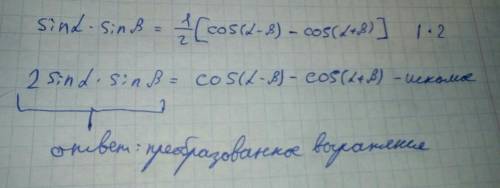 sinα · sinβ = 1/2 [cos(α-β) - cos(α+β)] | · 2
2 sinα · sinβ = cos(α-β) - cos(α+β) - искомое
ответ: преобразованное выражение